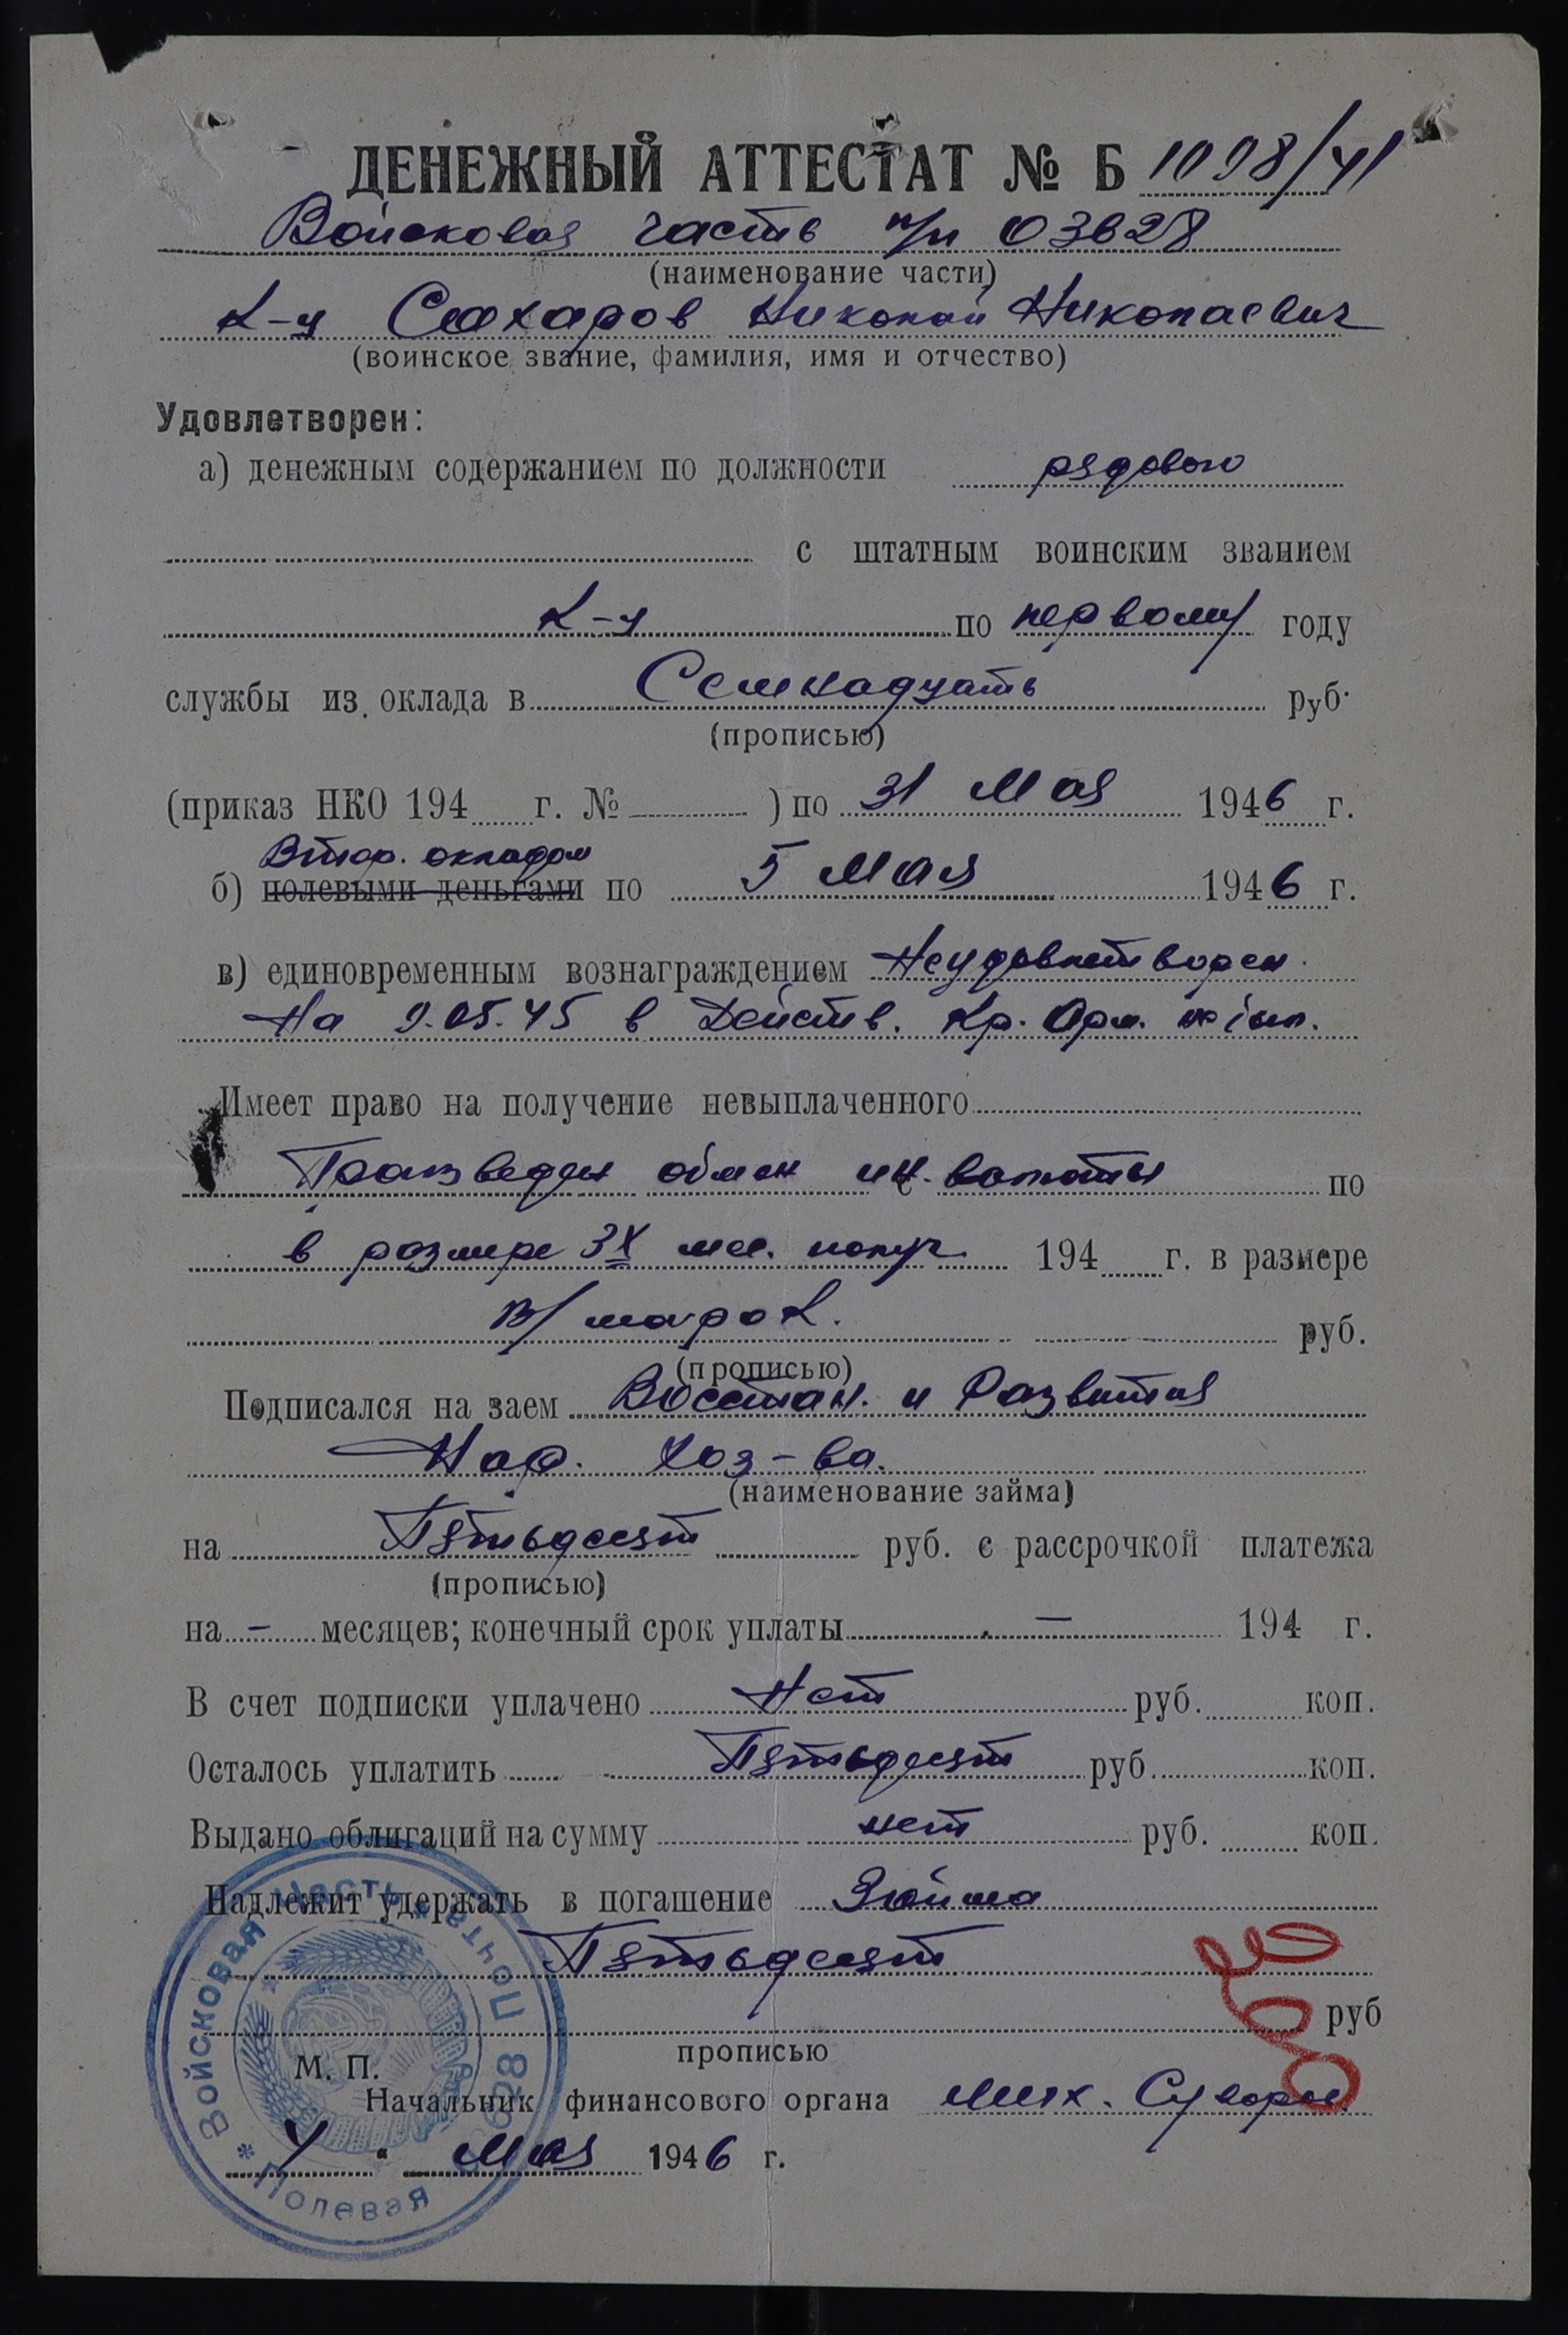 ДЕНЕЖНЫЙ АТТЕСТАТ № Б 1098/41
Войсковая часть п/п 03628
(наименование части)
К-ц Сахаров Николай Николаевич
(воинское звание, фамилия, имя и отчество)
Удовлетворен:
а) денежным содержанием по должности рядового
с штатным воинским званием
К-ц по первому году
службы из оклада в Семнадцать руб.
(прописью)
(приказ НКО 194 г. № ) по 31 Мая 1946 г.
Втор. окладом
б) полевыми деньгами по 5 Мая 1946 г.
в) единовременным вознаграждением Неудовлетворен.
На 9.05.45 в Действ. Кр. Арм. не был.
Имеет право на получение невыплаченного
Произведен обмен ин. валюты по
в размере 3х мес. получ. 194 г. в размере
В/марок.
руб.
(прописью)
Подписался на заем Восстан. и Развития
Нар. Хоз-ва.
(наименование займа)
на Пятьдесят руб. с рассрочкой платежа
(прописью)
на – месяцев; конечный срок уплаты – 194 г.
В счет подписки уплачено Нет руб. коп.
Осталось уплатить Пятьдесят руб. коп.
Выдано облигаций на сумму нет руб. коп.
Надлежит удержать в погашение Займа
Пятьдесят
руб
прописью
М. П.
Начальник финансового органа
" мая 1946 г.
Войсковая часть * Полевая Почта